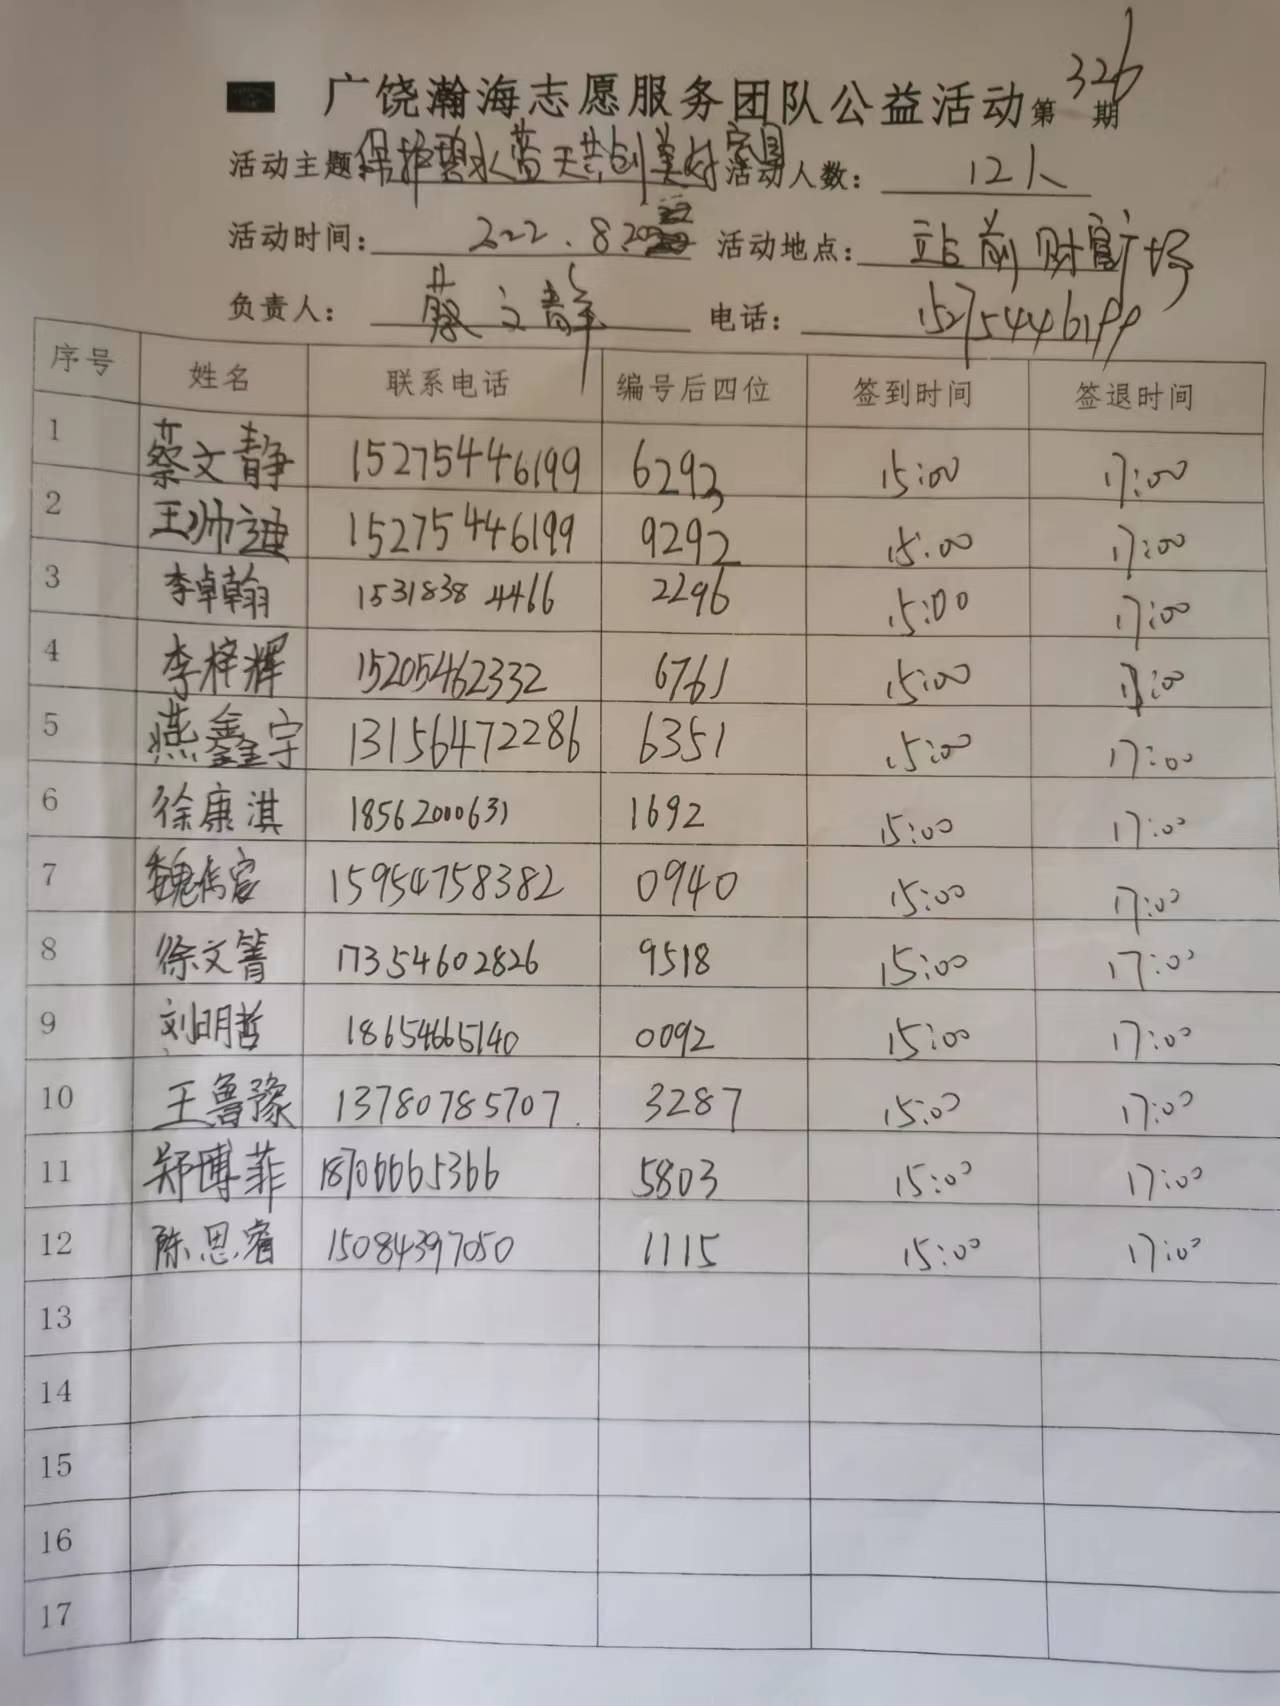 广饶瀚海志愿服务团队公益活动第326期
活动主题 保护碧水蓝天共创美好家园 活动人数: 12人
活动时间: 2022.8.20 活动地点: 站前财富广场
负责人: 蔡文静 电话: 15275446199
序号 姓名 联系电话 编号后四位 签到时间 签退时间
1 蔡文静 15275446199 6293 15:00 17:00
2 王帅迪 15275446199 9292 15:00 17:00
3 李卓翰 15318384466 2296 15:00 17:00
4 李梓辉 15205462332 6761 15:00 17:00
5 燕鑫宇 13156472286 6351 15:00 17:00
6 徐康淇 18562000631 1692 15:00 17:00
7 魏传宸 15954758382 0940 15:00 17:00
8 徐文箐 17354602826 9518 15:00 17:00
9 刘明哲 18654665140 0092 15:00 17:00
10 王鲁豫 13780785707 3287 15:00 17:00
11 郑博菲 18706665366 5803 15:00 17:00
12 陈思睿 15084397050 1115 15:00 17:00
13
14
15
16
17